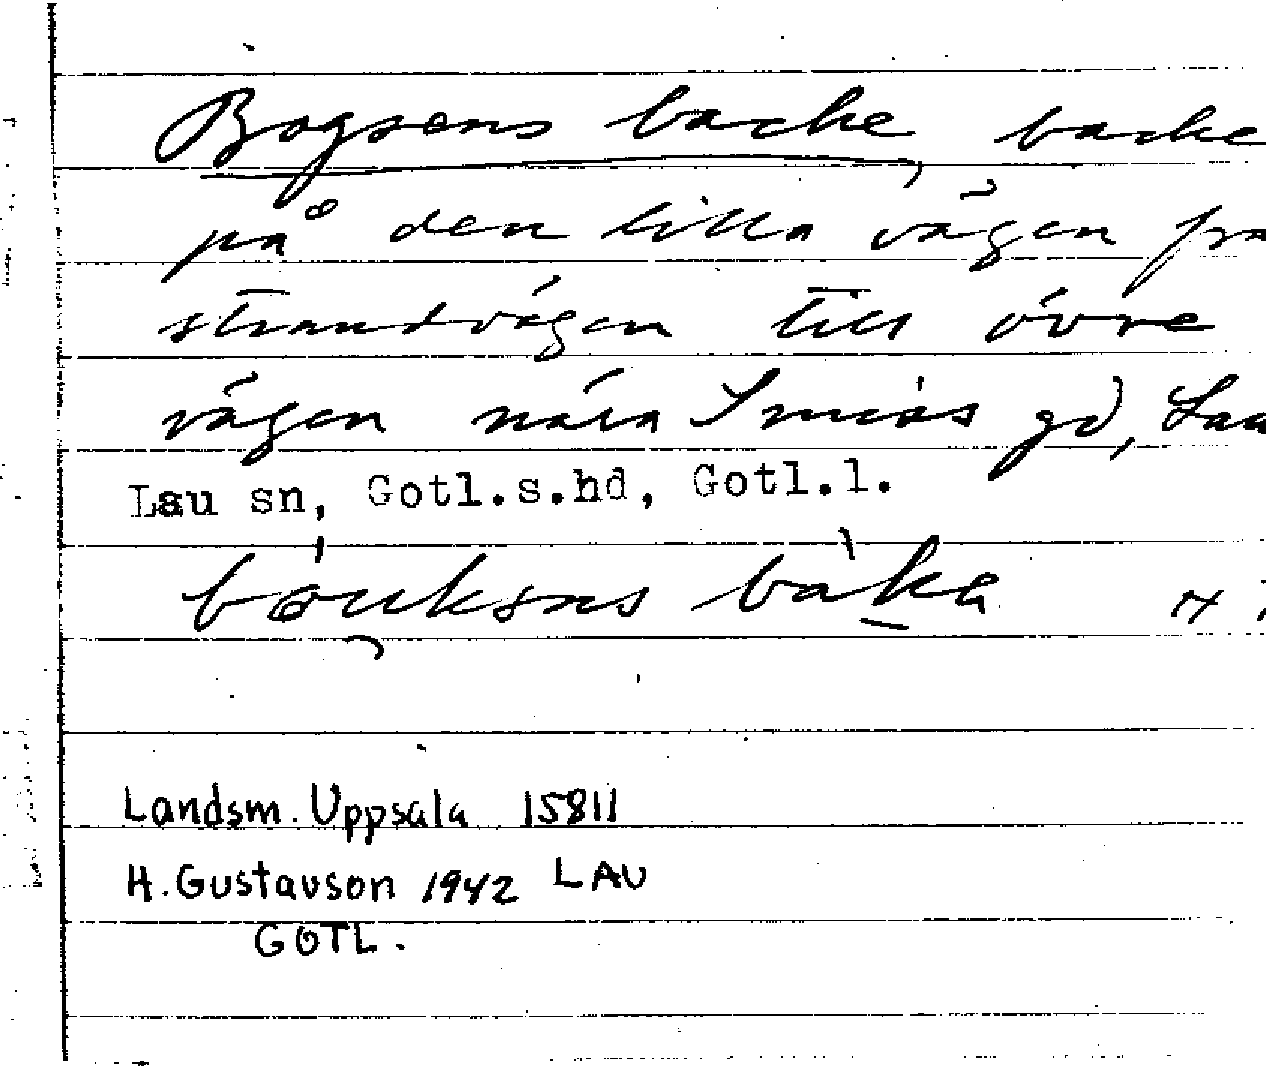 Bogsens backe, backe
på den lilla vägen fra
strandvägen till övre
vägen nära Smiss gd, Lau
Lau sn, Gotl.s.hd, Gotl.l.
bouksns baka
Landsm. Uppsala 15811
H. Gustavson 1942 LAU
GOTL.